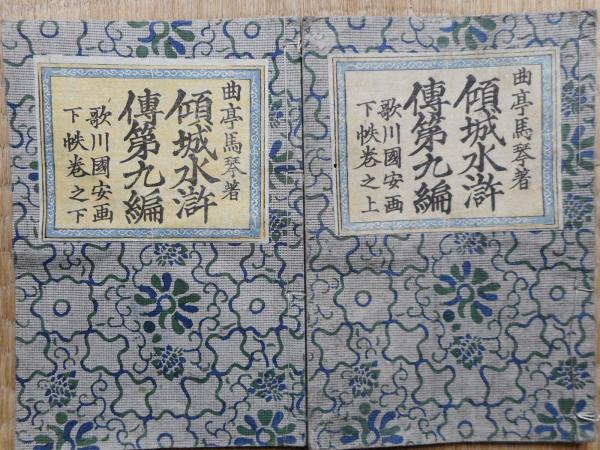 曲亭馬琴著
傾城水滸
傳第九編
歌川國安画
下帙巻之上
曲亭馬琴著
傾城水滸
傳第九編
歌川國安画
下帙巻之下